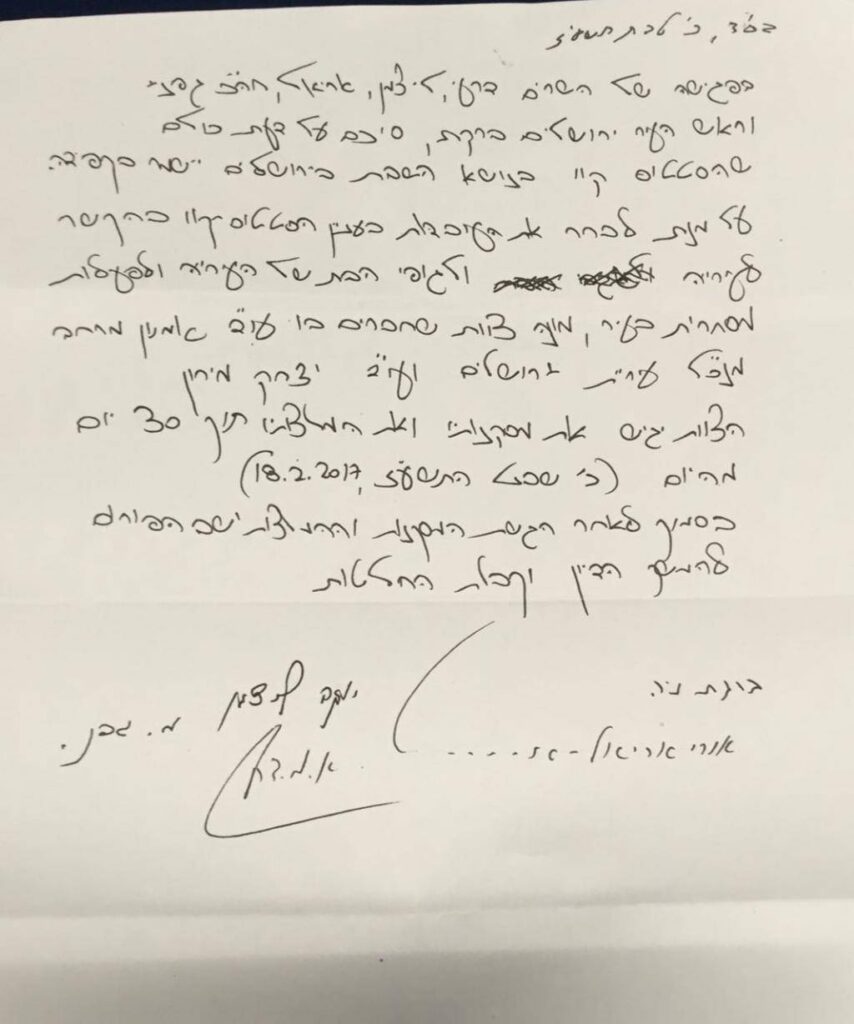 בס"ד, כ' טבת תשע"ז
בפגישה של השרים דרעי, ליצמן, אריאל, חה"כ גפני
וראש העיר ירושלים ברקת, סיכם על דעת כולם
שהסטטוס קוו בנושא השבת בירושלים ישמר בקפידה.
על מנת לברר את העובדות בענין הסטטוס-קוו בהקשר
לעיריה ולגופי הבת של העיריה ולפעילות
מסחרית בעיר, מונה צוות שחברים בו עו"ד אמנון מרחב
מנכ"ל עירית ירושלים ועו"ד יצחק
הצוות יגיש את מסקנותיו ואת המלצותיו תוך 30 יום
מהיום (כ' שבט התשע"ז, 18.2.2017)
בסמוך לאחר הגשת המסקנות וההמלצות ישב הפורום
להמשך הדיון וקבלת החלטות
יעקב ליצמן מ. גפני.
אורי אריאל